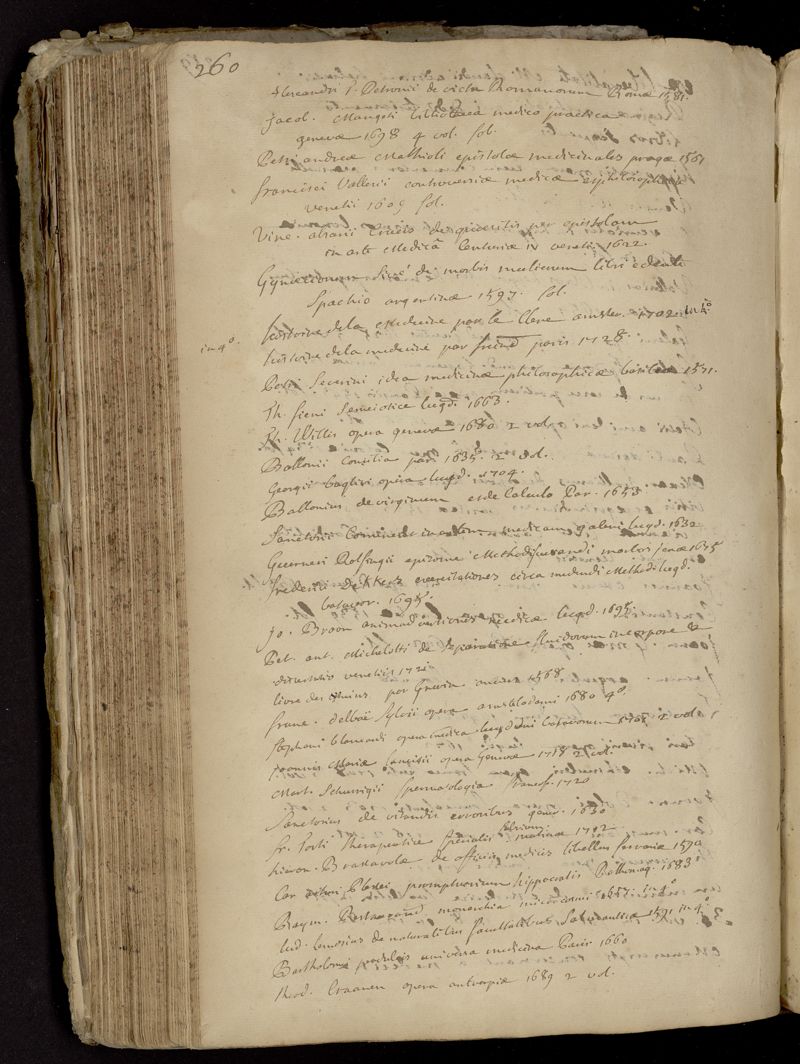 260
Alexandri T. Petronii de victu Romanorum Romæ 1581.
Jacol. Mangeti bibliotheca medico practica
genevæ 1698 4 vol. fol.
Petri andreæ Mathioli epistolæ medicinales pragæ 1561
francisci Vallerii controversiæ medicæ et philosophicæ
venetii 1609 fol.
Vinc. alsarii Crucis de quæsitis per epistolam
in arte Medicâ Centuriæ IV venetiis 1622.
Gynæciorum sive de morbis mulierum libri edente
Spachio argentinæ 1597. fol.
histoire de la Medecine par le Clerc amster. 1702 in 4º
in 4º.
histoire de la medecine par freind paris 1728
Petri Severini idea medicinæ philosophicæ basileæ 1571.
Th. fieni Semeiotice lugd. 1663.
Th. Willis opera genevæ 1680 2 vol.
Ballonii Consilia par. 1635. 2 vol.
Georgii baglivi opera lugd. 1704.
Ballonius de virginum et de Calculo Par. 1643
Sanctorii Comment. in artem medicam galeni lugd. 1632
Guerneri Rolfingii epitome Methodi curandi morbos Jenæ 1675
frederici Dekkers exercitationes circa medendi Methodi lugd.
batavor. 1695.
Jo. Broen animadversiones Medicæ lugd. 1695.
Pet. ant. Michelotti de Separatione fluidorum in corpore &
dissertatio venetiis 1721
livre des venins par Grevin anvers 1568
franc. delboë Sylvii opera amstelodami 1680 4º
Stephani blancardi opera medica lugduni batavorum 1701 2 vol.
Joannis Mariæ lancisii opera Genevæ 1718 2 vol.
Mart. Schurigii Spermatologia francof. 1720
Sanctorius de vitandis erroribus genev. 1630
fr. Torti Therapeutice Specialis mutinæ 1712
febrium
hieron. Brassavolæ de officiis medicis libellus ferrariæ 1590
Cæ promptuarium hippocratis Rothomag. 1683
Raym. Restaurand monarchia microcosmi 1657. in 4º
lud. lemosius de naturalibus facultatibus Salmanticæ 1591 in 4º
Bartholomæi perdulcis universa medicina Paris 1660
theod. Craanen opera antverpiæ 1689 2 vol.